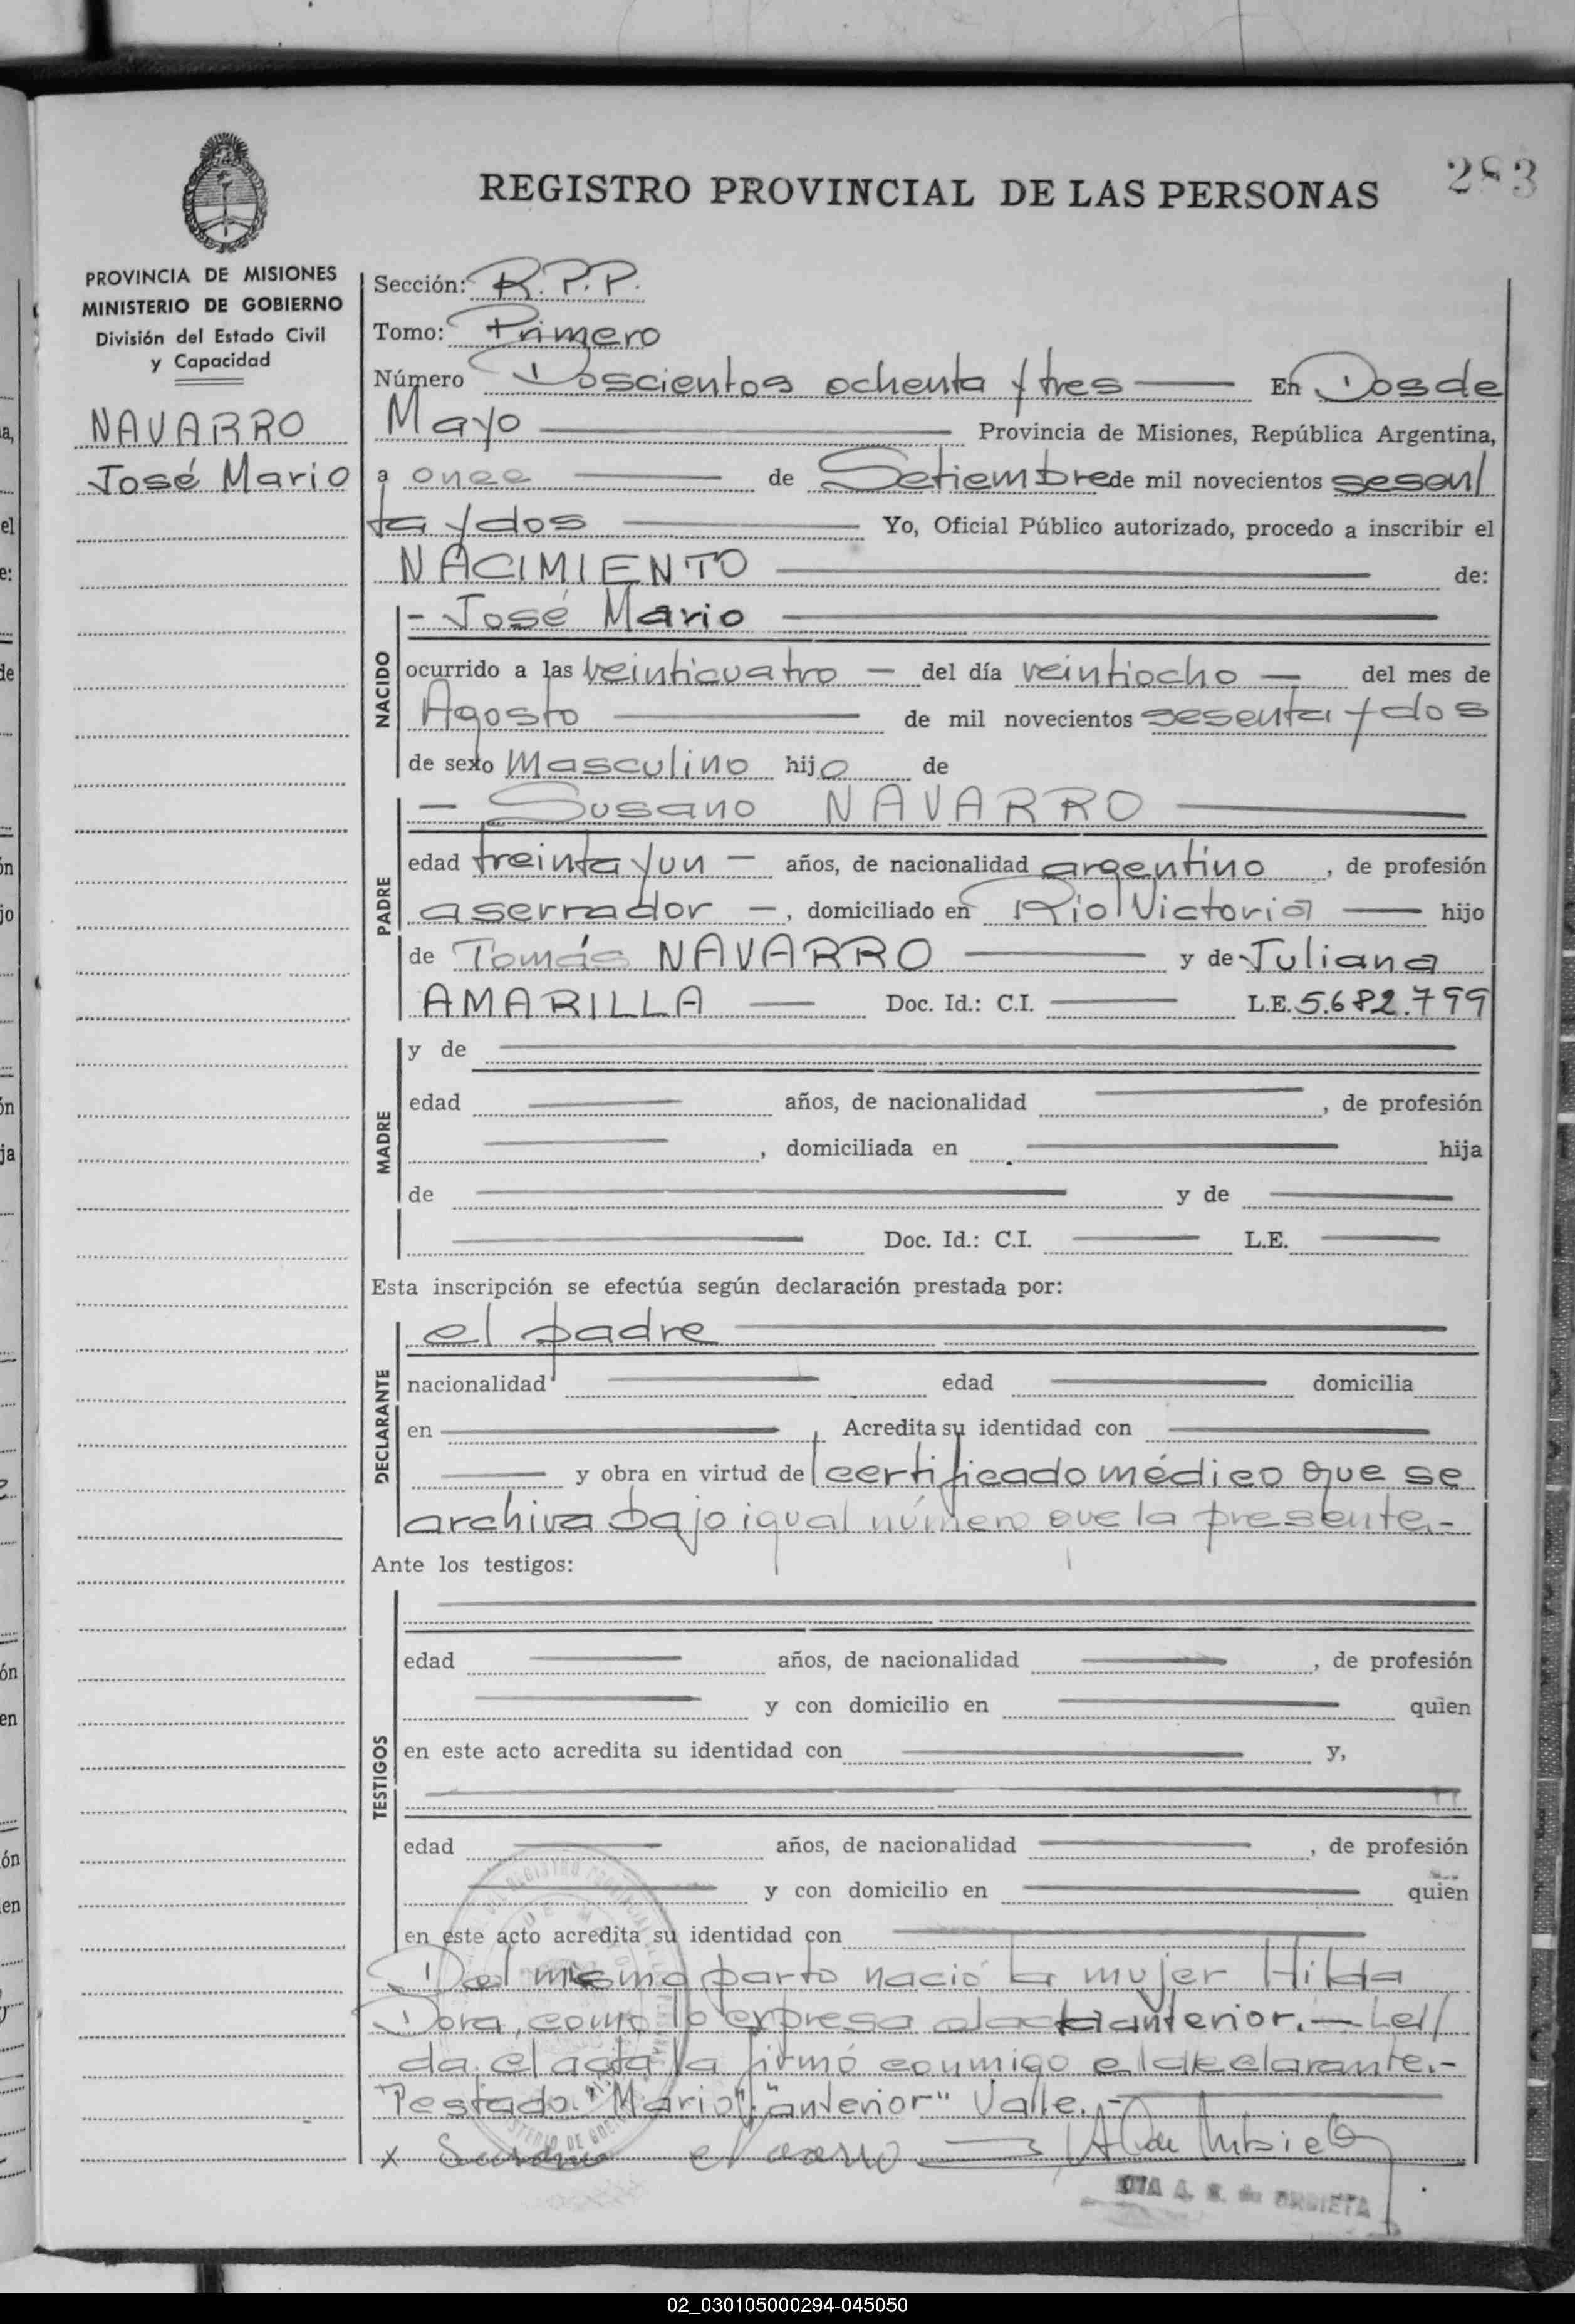 283
REGISTRO PROVINCIAL DE LAS PERSONAS
PROVINCIA DE MISIONES
MINISTERIO DE GOBIERNO
División del Estado Civil
y Capacidad
NAVARRO
José Mario
Sección: R.P.P.
Tomo: Primero
Número Doscientos ochenta y tres En Dos de
Mayo Provincia de Misiones, República Argentina,
a once de Setiembre de mil novecientos sesen/
ta y dos Yo, Oficial Público autorizado, procedo a inscribir el
NACIMIENTO de:
NACIDO
- José Mario
ocurrido a las veinticuatro — del día veintiocho — del mes de
Agosto de mil novecientos sesenta y dos
de sexo Masculino hijo de
PADRE
— Susano NAVARRO
edad treinta y un — años, de nacionalidad argentino, de profesión
aserrador —, domiciliado en Río Victoria hijo
de Tomás NAVARRO y de Juliana
AMARILLA Doc. Id.: C.I. L.E. 5.682.799
MADRE
y de
edad años, de nacionalidad , de profesión
, domiciliada en hija
de y de
Doc. Id.: C.I. L.E.
Esta inscripción se efectúa según declaración prestada por:
DECLARANTE
el padre
nacionalidad edad domicilia
en , Acredita su identidad con
y obra en virtud del certificado médico que se
archiva bajo igual número que la presente.-
Ante los testigos:
TESTIGOS
edad años, de nacionalidad , de profesión
y con domicilio en quien
en este acto acredita su identidad con y,
edad años, de nacionalidad , de profesión
y con domicilio en quien
en este acto acredita su identidad con
Del mismo parto nació la mujer Hilda
Dora, como lo expresa el acta anterior.— Leí/
da el acta la firmó conmigo el declarante.-
Testado "Mario" "anterior" Valle.-
x Susano Navarro
de URBIETA
02_030105000294-045050